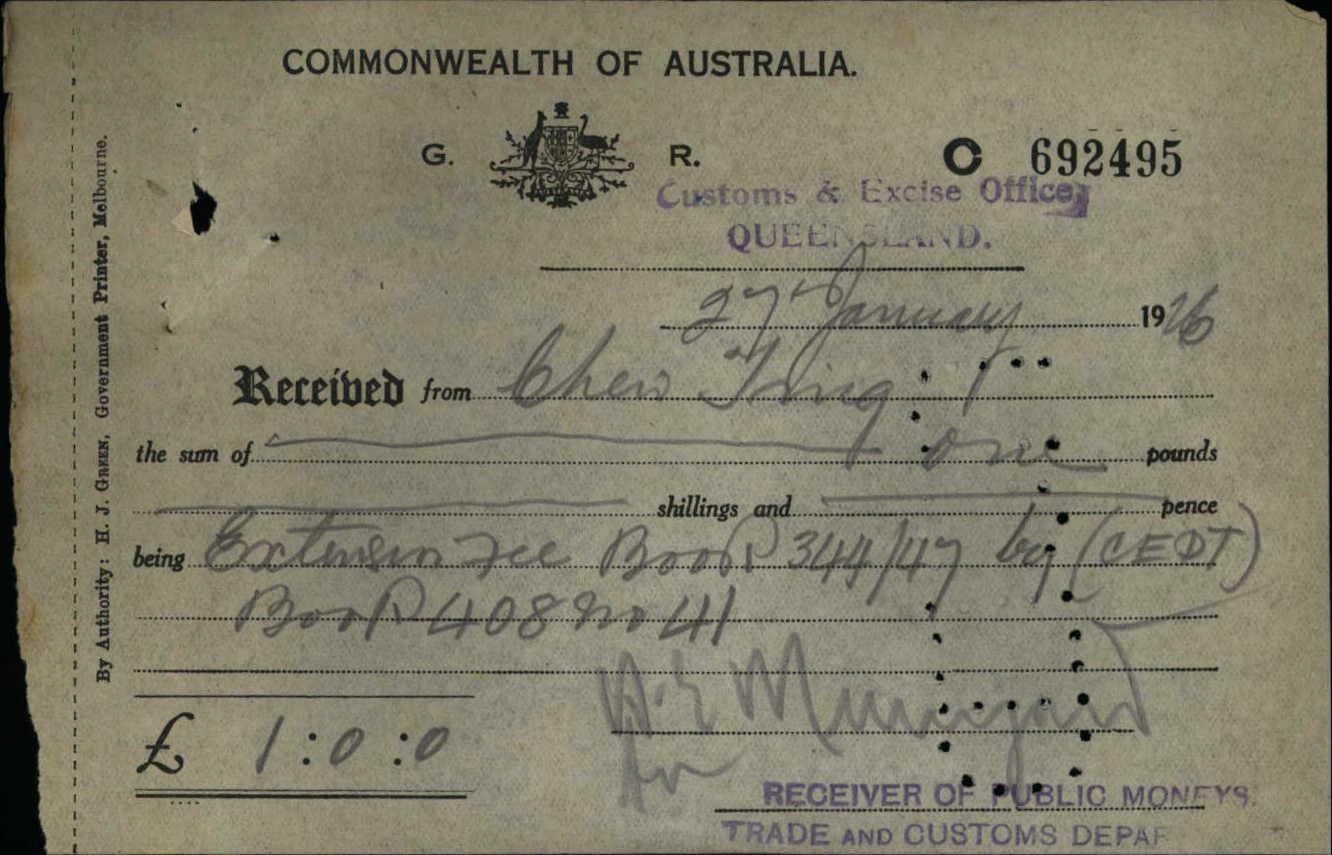 COMMONWEALTH OF AUSTRALIA.
G. R. C 692495
Customs & Excise Office,
QUEENSLAND.
27 January 1926
Received from Chew Ting
the sum of one pounds
shillings and pence
being Extension Fee Book 344/47 by (CEDT)
Book 408 No 41
£ 1:0:0
for
RECEIVER OF PUBLIC MONEYS.
TRADE AND CUSTOMS DEPAR
By Authority: H. J. GREEN, Government Printer, Melbourne.